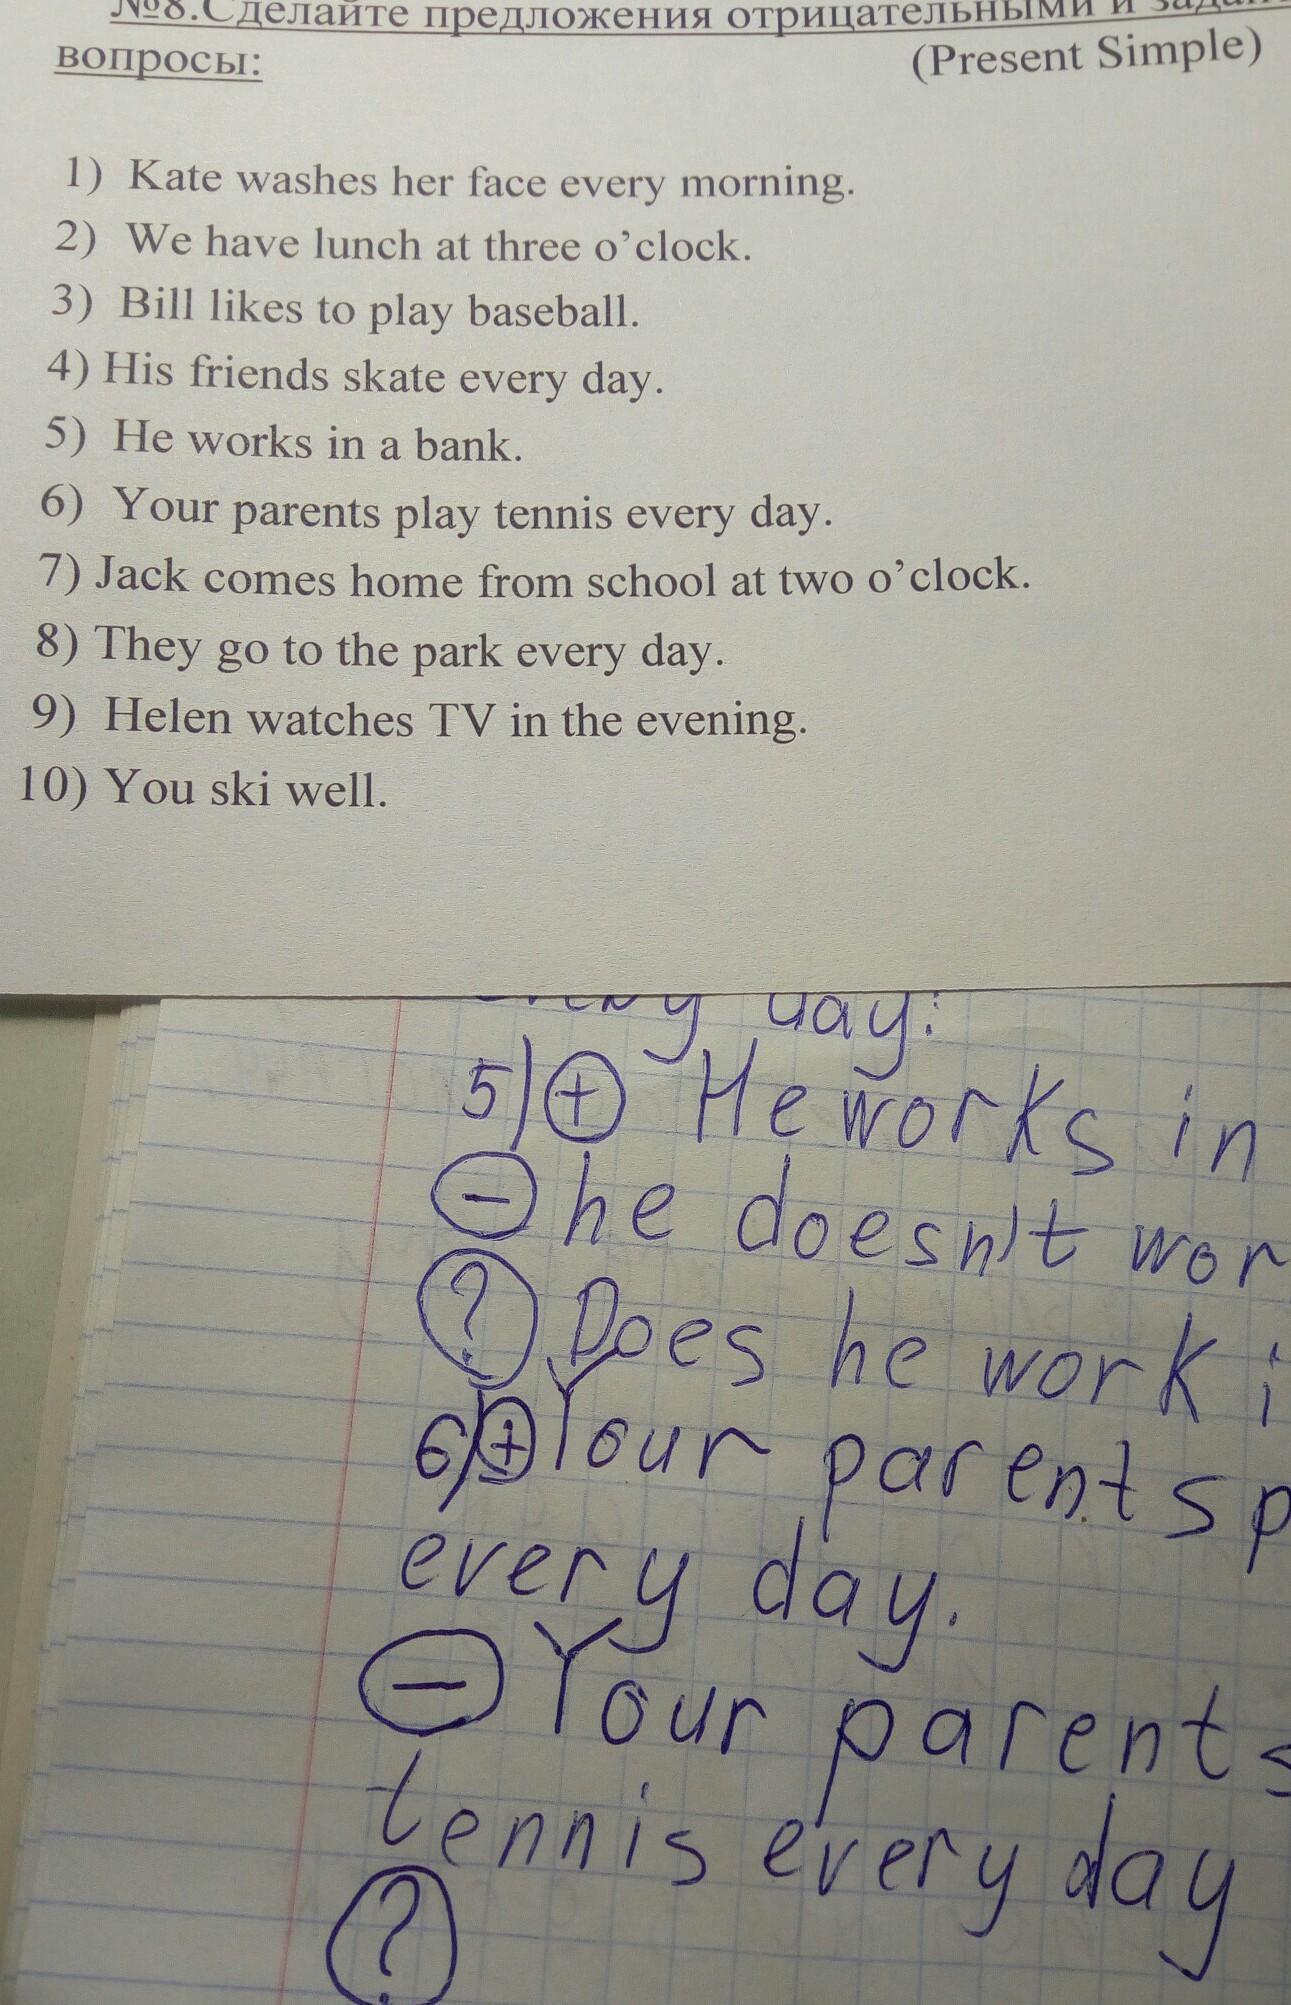 №8.Сделайте предложения отрицательными и
вопросы: (Present Simple)
1) Kate washes her face every morning.
2) We have lunch at three o’clock.
3) Bill likes to play baseball.
4) His friends skate every day.
5) He works in a bank.
6) Your parents play tennis every day.
7) Jack comes home from school at two o’clock.
8) They go to the park every day.
9) Helen watches TV in the evening.
10) You ski well.
day.
5) + He works in
- he doesn't wor
? Does he work i
6) + Your parents p
every day.
- Your parents
tennis every day
?